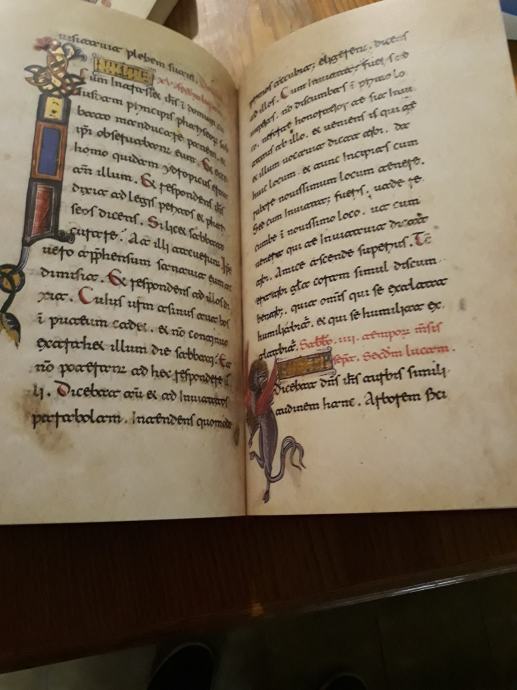 uisitauit plebem suam.
um intrasset dns i domum cu
iusdam principis phariseor sab
bato manducare panem, et
ipi obseruabant eum. Et ecce
homo quidam ydropicus erat
an illum. Et respondens ihs
dixit ad legis peritos et phari
seos dicens. Si licet sabbato
curare. At illi tacuerunt. Ipse
uero apphensum sanauit eum ac
dimisit. Et respondens ad illos di
xit. Cuius urm asinus aut bos
i puteum cadet. et no continuo
extrahet illum die sabbati. Et
no poterant ad hec respondere il
li. Dicebat au et ad inuitatos
parabolam. intendens quomodo
primos accubit eligeret. dicens
ad illos. Cum inuitat fuer ad
nuptias. no discumbas i primo lo
co. ne forte honoratior te sit inuit
tatus ab illo. et ueniens is qui te
et illum uocauit dicat tibi. da
huic locum. et tunc incipias cum
rubore nouissimum locum tenere.
Sed cum inuitat fuers. uade re
cumbe i nouissimo loco. ut cum
uenerit qui te inuitauit dicat
tibi. Amice ascende superius. Tc
erit tibi gla coram simul discum
bentib. quia omis qui se exaltat
humiliabit. et qui se humiliat ex
altabit. Sabbo. iiii. tempor msis
sept. Secdm lucam.
Dicebat dns ihs turbis simili
tudinem hanc. Arborem fici